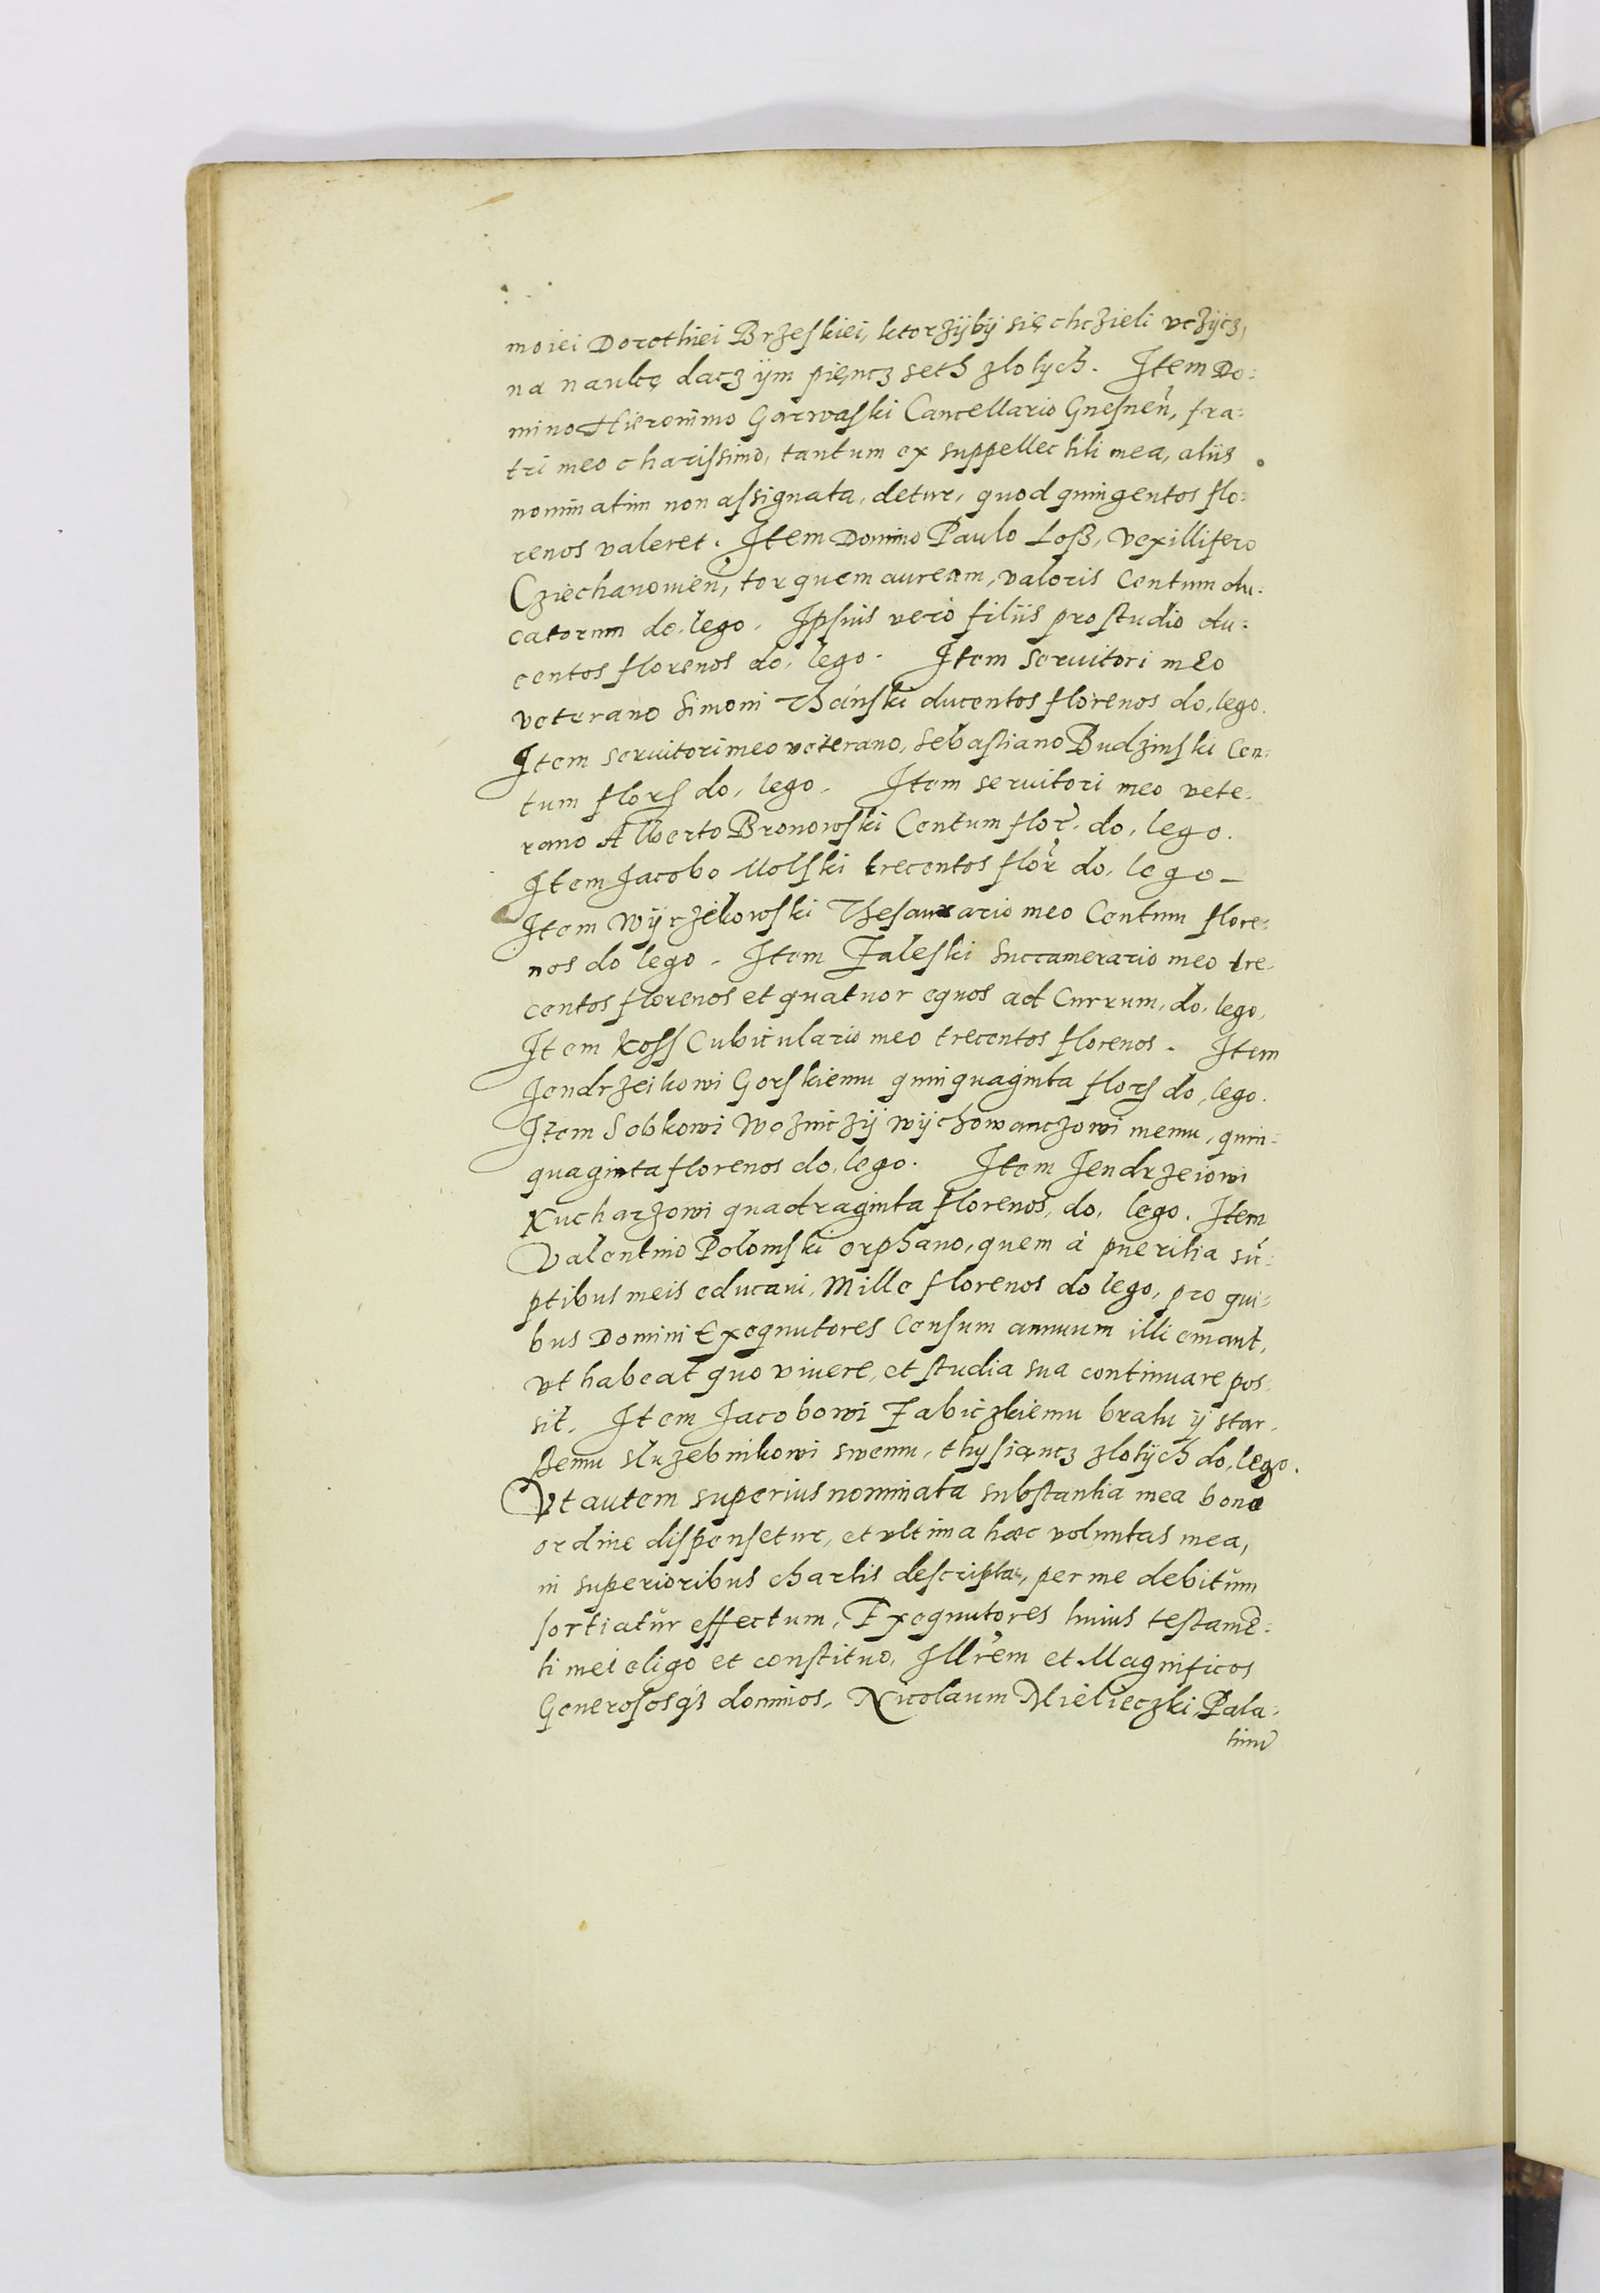 moiei Dorothiei Brzeskiei, ktorzÿbÿ się chczieli vczÿcz,
na naukę dacz ÿm pięncz seth zlotÿch. Item Do:
mino Hieronimo Garwaski Cancellario Gnesneñ, fra:
tri meo charissimo, tantum ex suppellectili mea, aliis
nominatim non assignata, detur, quod quingentos flo:
renos valeret. Item Domino Paulo Loß, Vexillifero
Cziechanovieñ, torquem auream, valoris Centum du:
catorum do, lego. Ipsius verò filiis pro studio du:
centos florenos do, lego. Item Servitori meo
veterano Simoni Thánski ducentos florenos do, lego.
Item servitori meo veterano, Sebastiano Budzinski Cen:
tum flors do, lego. Item servitori meo vete:
rano Alberto Bronowski Centum flor. do, lego.
Item Jacobo Molski trecentos flor do, lego _
Item Wÿrzikowski Thesaurario meo Centum flore:
nos do lego. Item Zaleski Succamerario meo tre:
centos florenos et quatuor equos ad Currum, do, lego,
Item Koss Cubiculario meo trecentos florenos. Item
Jendrzeikowi Gorskiemu quinquaginta flors do, lego.
Item Sobkowi Wozniczÿ wÿchowanczowi memu, quin:
quaginta florenos do, lego. Item Jendrzeiowi
Kucharzowi quadraginta florenos, do, lego. Item
Valentino Polomski orphano, quem à pueritia sũ:
ptibus meis educavi, Mille florenos do lego, pro qui:
bus Domini Exequutores Censum annuum illi emant,
vt habeat quo vivere, et studia sua continuare pos:
sit. Item Jacobowi Zabiczkiemu bratu ÿ star:
ßemu sluzebnikowi swemu, thysiąncz zlotÿch do, lego.
Vt autem superius nominata substantia mea bono
ordine dispensetur, et vltima hæc voluntas mea,
in superioribus chartis descripta, per me debitum
sortiatur effectum, Exequutores huius testamẽ:
ti mei eligo et constituo, Illrem et Magnificos
Generososqз dominos, Nicolaum Mielieczki, Pala:
tinũ